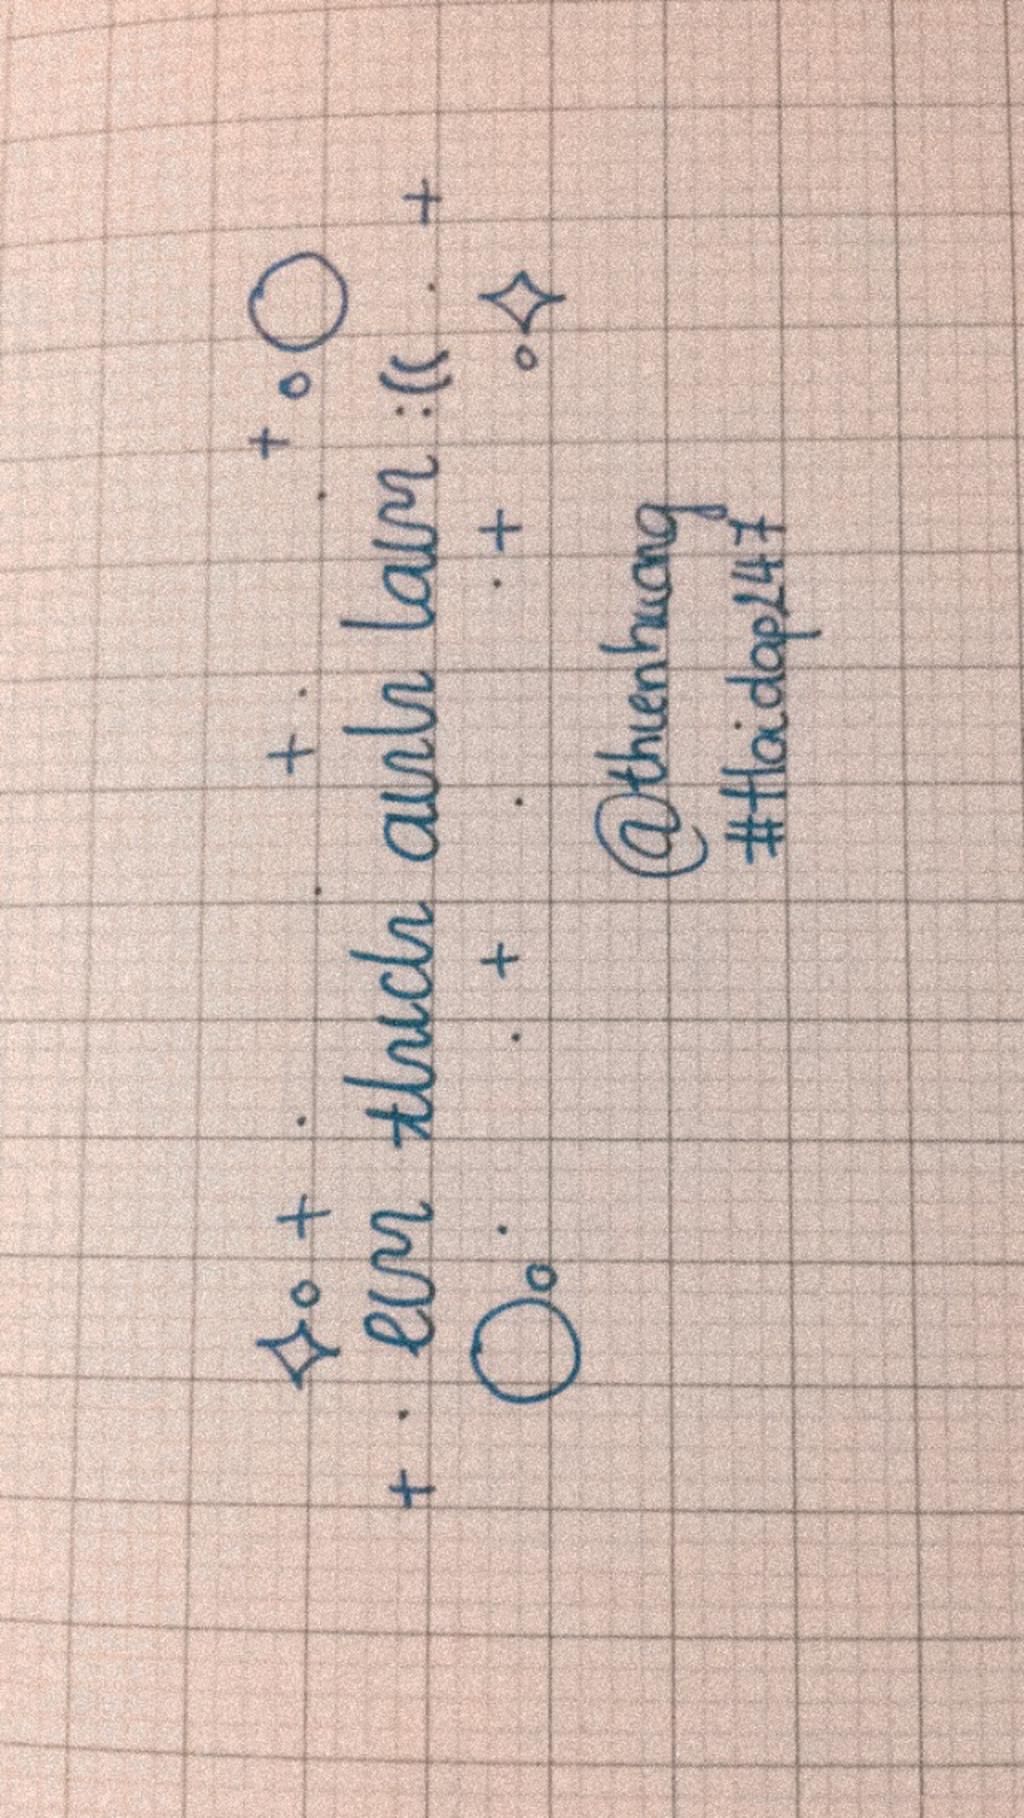 em thich anh lam :((
@thienhuong
#Hoidap247